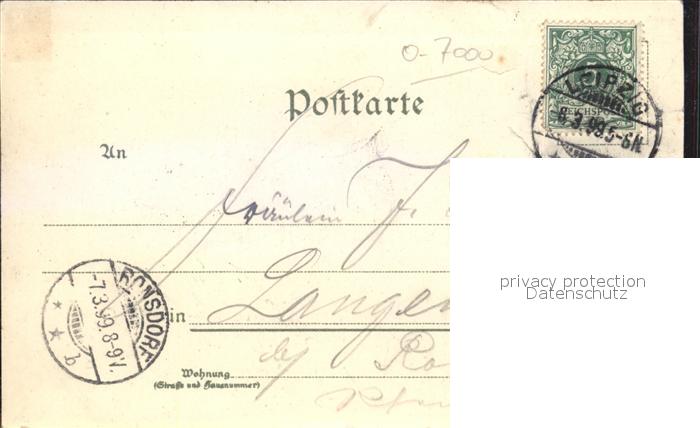 0-7000
REICHSPOST
LEIPZIG
6.3.99.5-6N.
Postkarte
An
Fräulein J.
privacy protection
Datenschutz
RONSDORF
-7.3.99.8-9V.
* * b
in Langen
bej Ro
Wohnung
(Straße und Hausnummer)